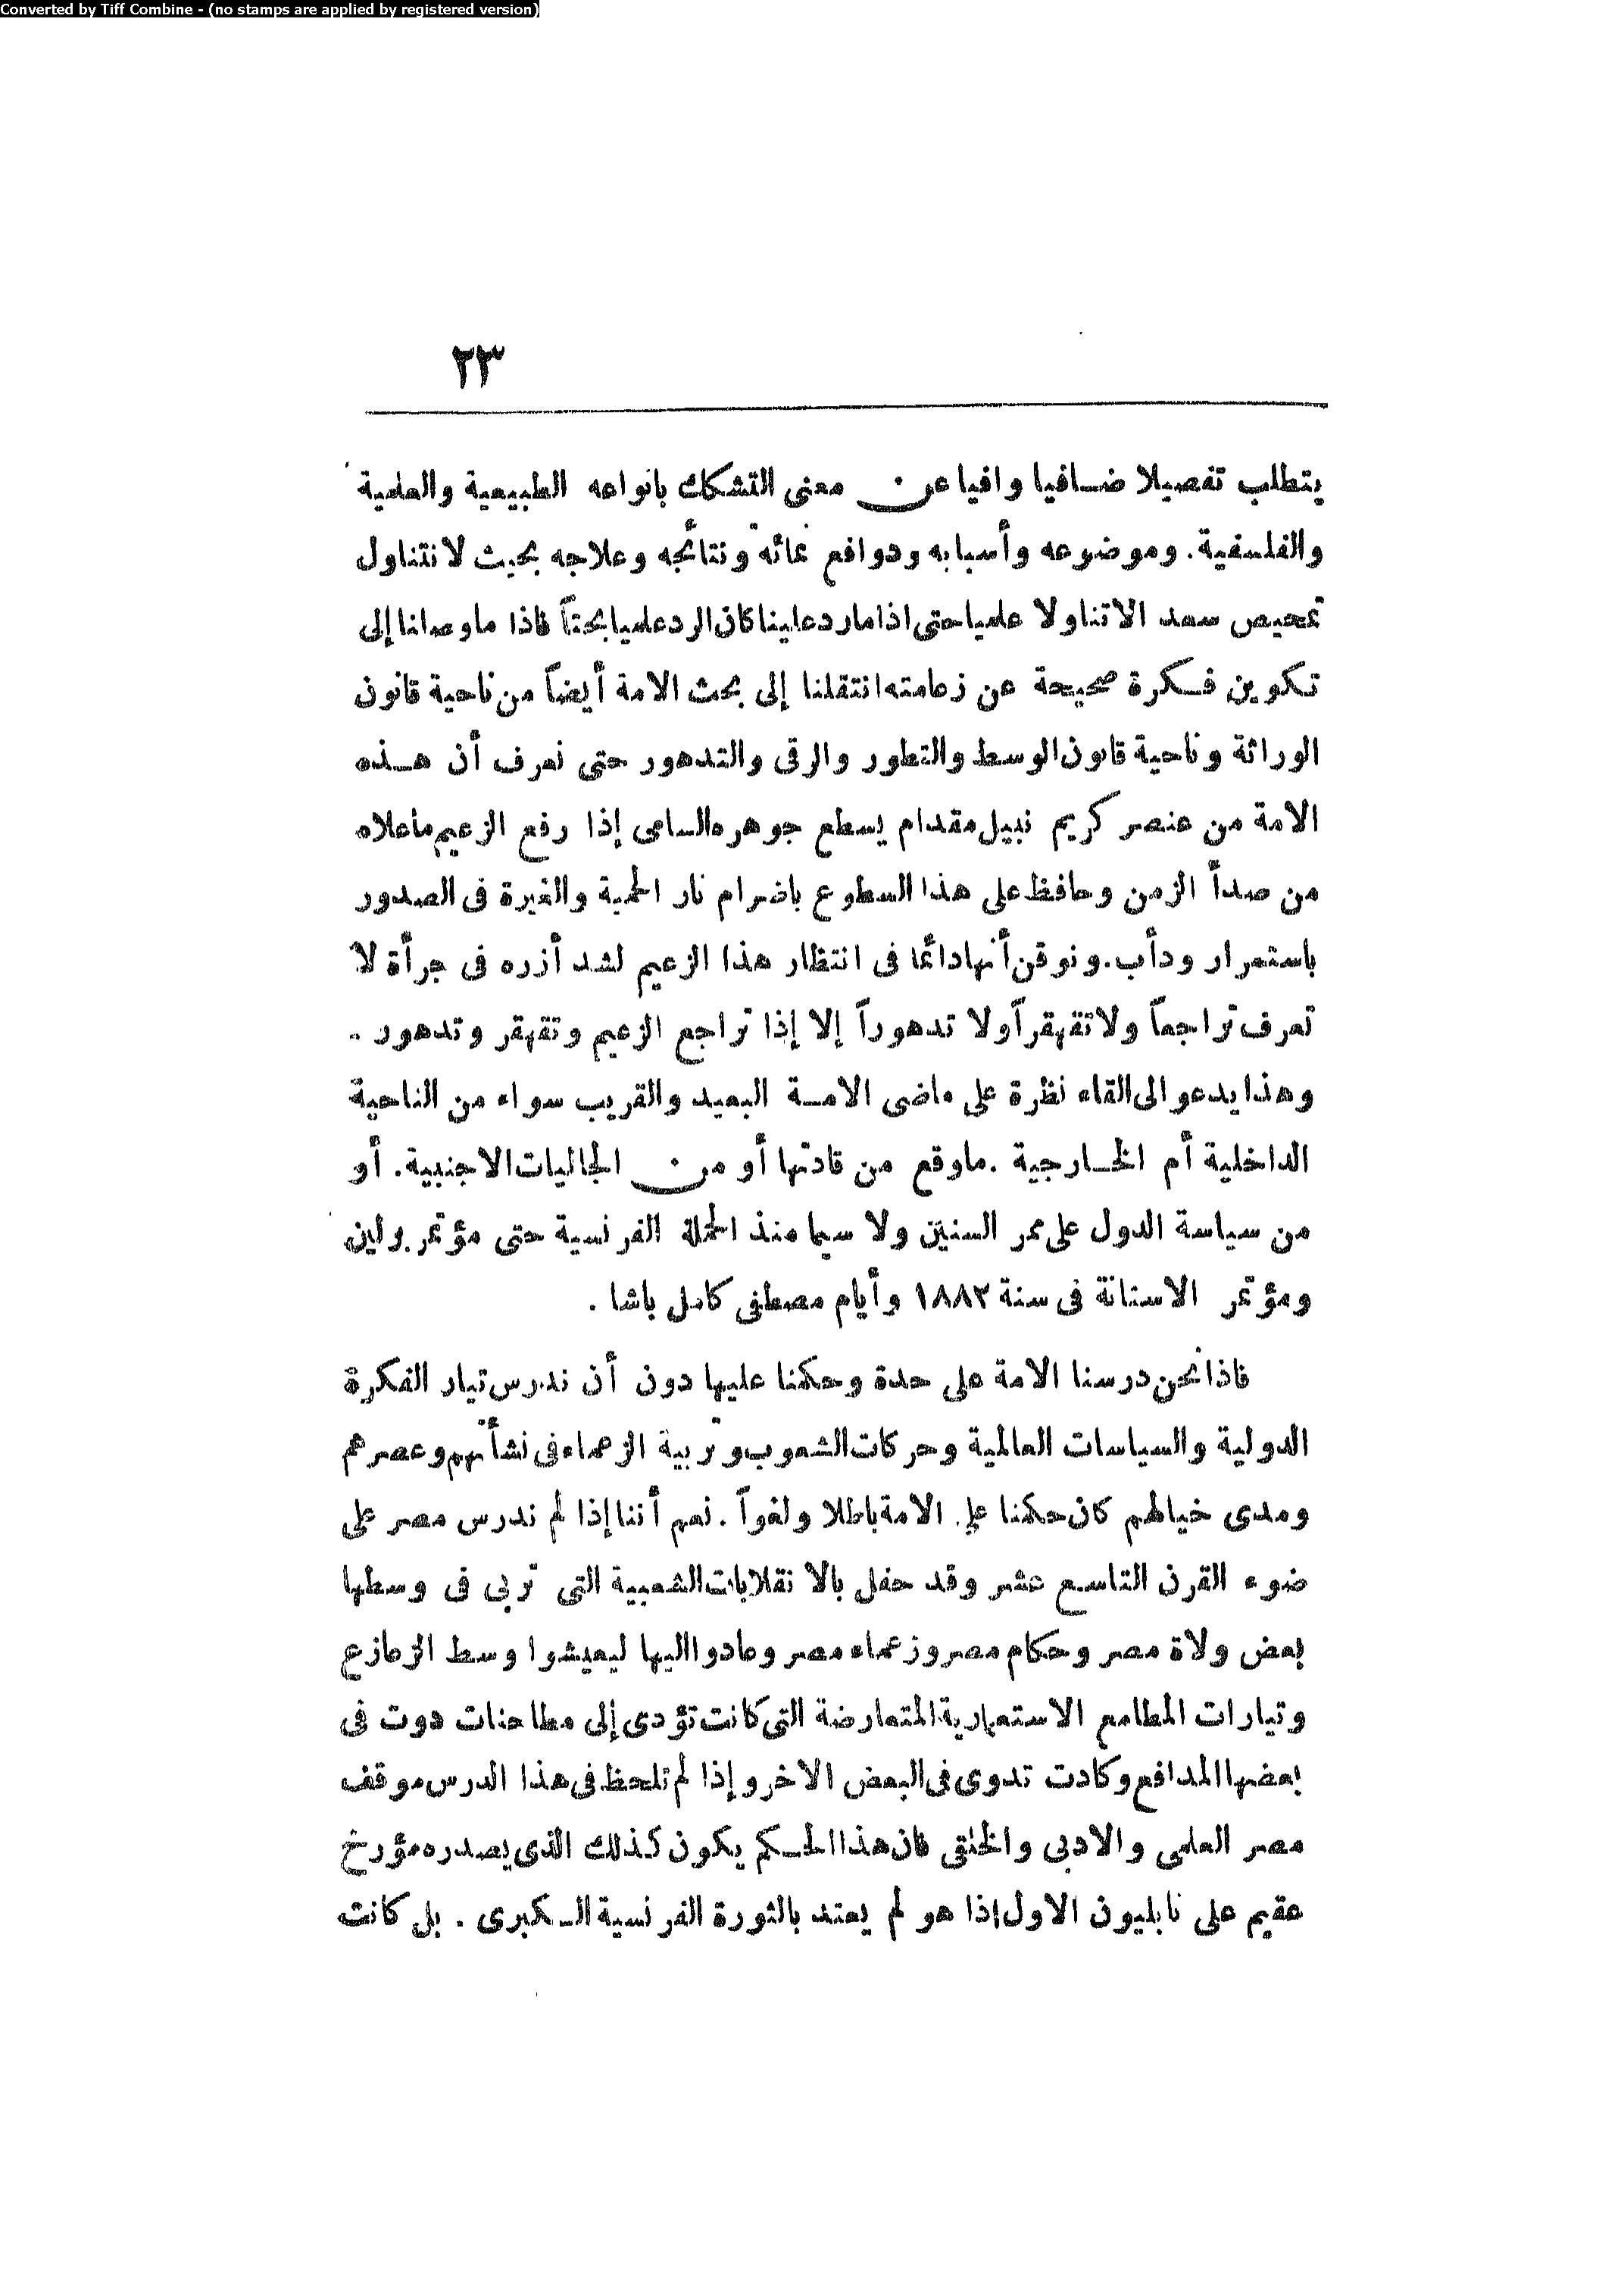 Converted by Tiff Combine - (no stamps are applied by registered version)
٢٣
يتطلب تفصيلا ضافيا وافيا عن معنى التشكك بانواعه الطبيعية والعلمية
والفلسفية. وموضوعه وأسبابه ودوافع نمائه ونتائجه وعلاجه بحيث لا نتناول
تمحيص سعد الا تناولا علميا حتى اذا مارد علينا كان الرد علميا بحتاً فاذا ما وصلنا إلى
تكوين فكرة صحيحة عن زعامته انتقلنا إلى بحث الامة أيضاً من ناحية قانون
الوراثة وناحية قانون الوسط والتطور والرقى والتدهور حتى نعرف أن هذه
الامة من عنصر كريم نبيل مقدام يسطع جوهره السامى إذا رفع الزعيم ماعلاه
من صدأ الزمن وحافظ على هذا السطوع باضرام نار الحمية والغيرة فى الصدور
باستمرار ودأب. ونوقن أنها دائما فى انتظار هذا الزعيم لشد أزره فى جرأة لا
تعرف تراجعاً ولا تقهقراً ولا تدهوراً إلا إذا تراجع الزعيم وتقهقر وتدهور .
وهذا يدعو الى القاء نظرة على ماضى الامة البعيد والقريب سواء من الناحية
الداخلية أم الخارجية . ماوقع من قادتها أو من الجاليات الاجنبية. أو
من سياسة الدول على ممر السنين ولا سيما منذ الحملة الفرنسية حتى مؤتمر برلين
ومؤتمر الاستانة فى سنة ١٨٨٢ وأيام مصطفى كامل باشا .
فاذا نحن درسنا الامة على حدة وحكمنا عليها دون أن ندرس تيار الفكرة
الدولية والسياسات العالمية وحركات الشعوب وتربية الزعماء فى نشأتهم وعصرهم
ومدى خيالهم كان حكمنا على الامة باطلا ولغواً . نعم أننا إذا لم ندرس مصر على
ضوء القرن التاسع عشر وقد حفل بالانقلابات الشعبية التى تربى فى وسطها
بعض ولاة مصر وحكام مصر وزعماء مصر وعادوا اليها ليعيشوا وسط الزعازع
وتيارات المطامع الاستعمارية المتعارضة التى كانت تؤدى إلى مطاحنات دوت فى
بعضها المدافع وكادت تدوى فى البعض الاخر وإذا لم نلحظ فى هذا الدرس موقف
مصر العلمى والادبى والخلقى فان هذا الحكم يكون كذلك الذى يصدره مؤرخ
عقيم على نابليون الاول إذا هو لم يعتد بالثورة الفرنسية الكبرى . بل كانت